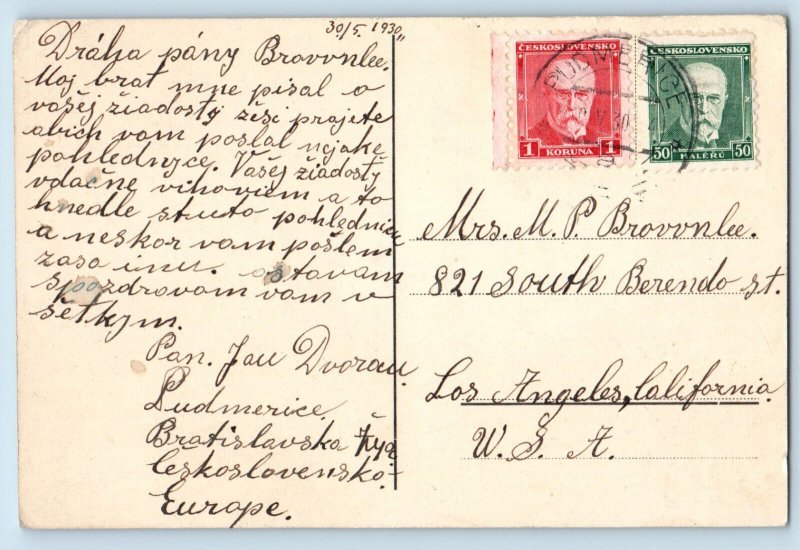 30/5. 1930,,
Dráha pány Brovvnlee.
Moj brat mne pisal o
vašej žiadosty žeši prajete
abich vam poslal nejake
pohlednyce. Vašej žiadosty
vdačne vihoviem a to
hnedle stuto pohlednicu
a neskor vam pošlem
zaso inu. ostavam
spozdravom vam v
šetkym.
Pan. Jan Dvorau
Pudmerice
Bratislavska
Československo
Europe.
ČESKOSLOVENSKO
1 KORUNA 1
ČESKOSLOVENSKO
50 HALÉŘŮ 50
PUDMERICE
V 30
Mrs. M. P. Brovvnlee.
821 South Berendo st.
Los Angeles, California
U. S. A.